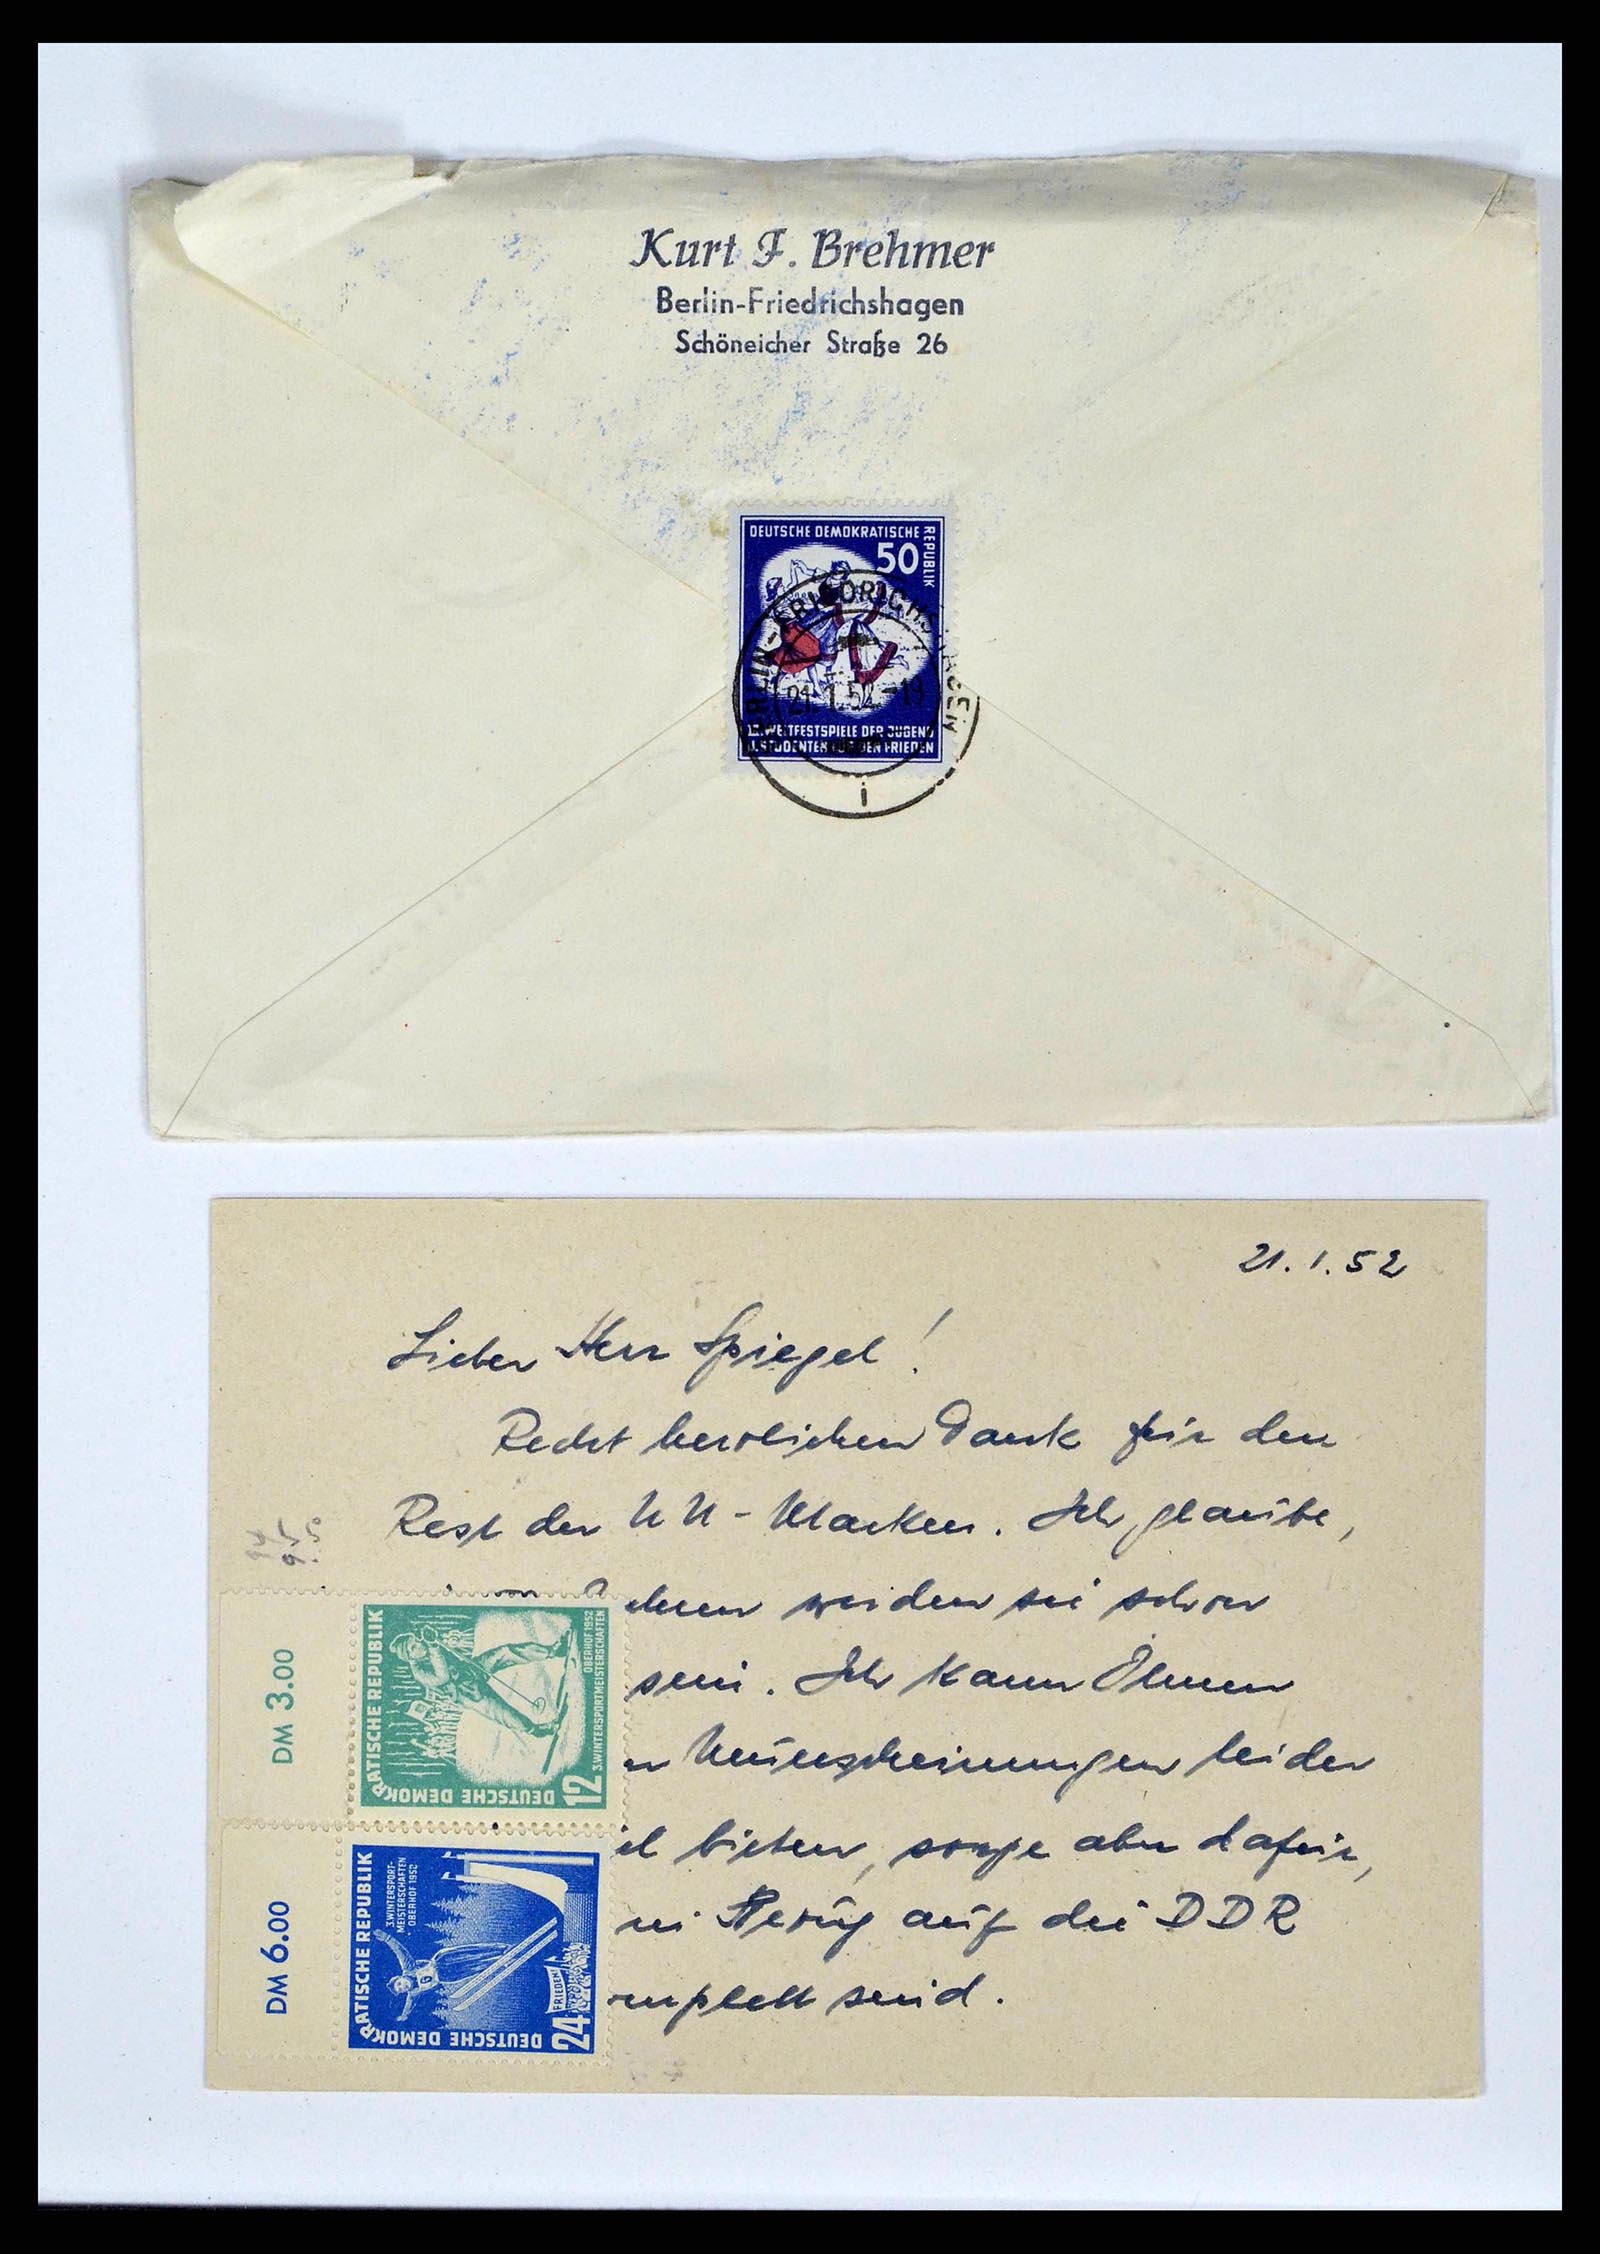 Kurt F. Brehmer
Berlin-Friedrichshagen
Schöneicher Straße 26
DEUTSCHE DEMOKRATISCHE
REPUBLIK
50
BERLIN-FRIEDRICHSHAGEN
21.1.52.-19
WELTFESTSPIELE DER JUGEND
U. STUDENTEN FÜR DEN FRIEDEN
i
21.1.52
Lieber Herr Spiegel!
Recht herzlichen Dank für den
Rest der UN-Marken. Ich glaube,
werden sie schon
sein. Ich kann Ihnen
Neuerscheinungen leider
bieten, sorge aber dafür,
Bezug auf die DDR
sind.
DM 3.00
DEUTSCHE DEMOKRATISCHE REPUBLIK
12
3. WINTERSPORTMEISTERSCHAFTEN
OBERHOF 1952
DM 6.00
DEUTSCHE DEMOKRATISCHE REPUBLIK
24
3. WINTERSPORT-
MEISTERSCHAFTEN
OBERHOF 1952
FRIEDEN